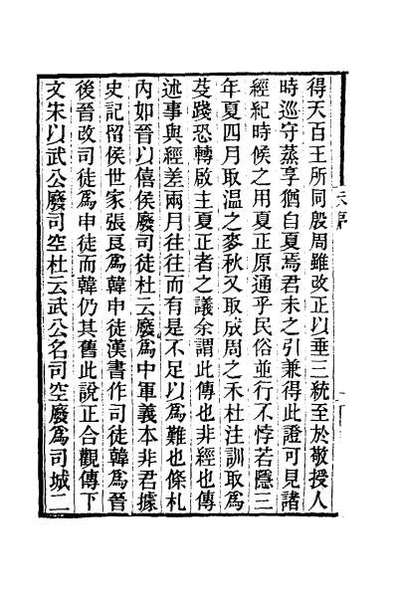 得天百王所同殷周雖改正以垂三統至於敬授人
時巡守蒸享猶自夏焉君未之引兼得此證可見諸
經紀時候之用夏正原通乎民俗並行不悖若隱三
年夏四月取溫之麥秋又取成周之禾杜注訓取爲
芟踐恐轉啟主夏正者之議余謂此傳也非經也傳
述事與經差兩月往往而有是不足以爲難也條札
內如晉以僖侯廢司徒杜云廢爲中軍義本非君據
史記留侯世家張良爲韓申徒漢書作司徒韓爲晉
後晉改司徒爲申徒而韓仍其舊此說正合觀傳下
文宋以武公廢司空杜云武公名司空廢爲司城二
序